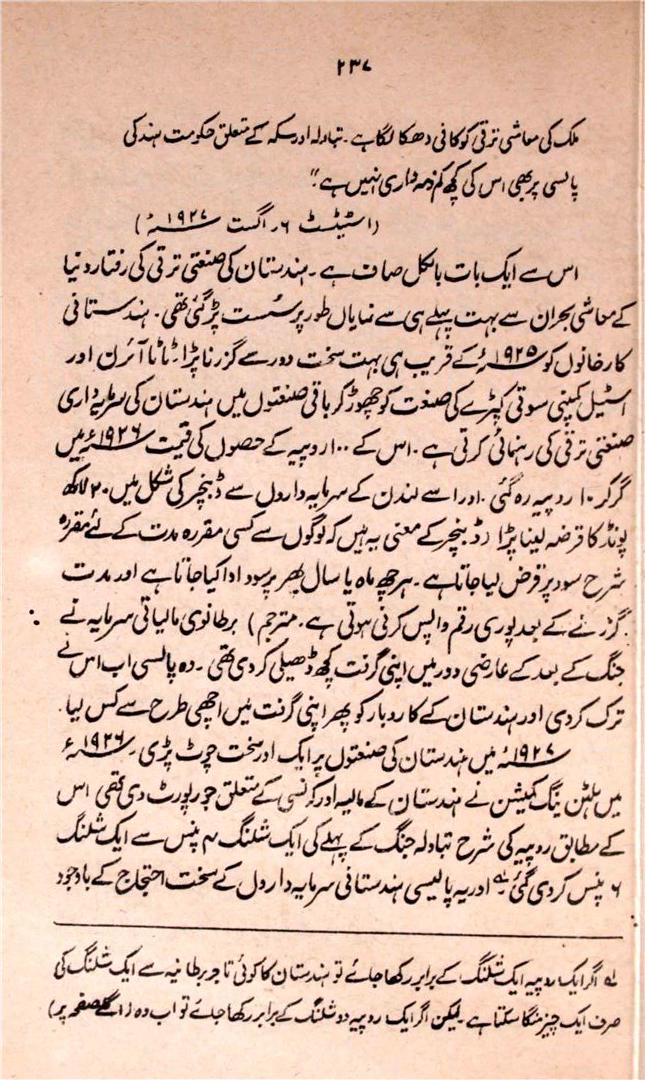 ۲۳۷
ملک کی معاشی ترقی کو کافی دھکا لگا ہے۔ تبادلہ اور سکہ کے متعلق حکومت ہند کی
پالسی پر بھی اس کی کچھ کم ذمہ داری نہیں ہے"
(اسٹیٹسٹ ۶ اگست ۱۹۲۷ء)
اس سے ایک بات بالکل صاف ہے۔ ہندستان کی صنعتی ترقی کی رفتار دنیا
کے معاشی بحران سے بہت پہلے ہی سے نمایاں طور پر سُست پڑ گئی تھی۔ ہندستانی
کارخانوں کو ۱۹۲۵ء کے قریب ہی بہت سخت دور سے گزرنا پڑا۔ ٹاٹا آئرن اور
اسٹیل کمپنی سوتی کپڑے کی صنعت کو چھوڑ کر باقی صنعتوں میں ہندستان کی سرمایہ داری
صنعتی ترقی کی رہنمائی کرتی ہے۔ اس کے ۱۰۰ روپیہ کے حصوں کی قیمت ۱۹۲۶ء میں
گر کر ۱۰ روپیہ رہ گئی۔ اور اسے لندن کے سرمایہ داروں سے ڈبنچر کی شکل میں ۲۰ لاکھ
پونڈ کا قرضہ لینا پڑا (ڈبنچر کے معنی یہ ہیں کہ لوگوں سے کسی مقررہ مدت کے لئے مقررہ
شرح سود پر قرض لیا جاتا ہے۔ ہر چھ ماہ یا سال بھر پر سود ادا کیا جاتا ہے اور مدت
گزرنے کے بعد پوری رقم واپس کرنی ہوتی ہے۔ مترجم) برطانوی مالیاتی سرمایہ نے
جنگ کے بعد کے عارضی دور میں اپنی گرفت کچھ ڈھیلی کر دی تھی۔ وہ پالسی اب اس نے
ترک کردی اور ہندستان کے کاروبار کو پھر اپنی گرفت میں اچھی طرح سے کس لیا۔
۱۹۲۷ء میں ہندستان کی صنعتوں پر ایک اور سخت چوٹ پڑی۔ ۱۹۲۶ء
میں ہلٹن ینگ کمیشن نے ہندستان کے مالیہ اور کرنسی کے متعلق جو رپورٹ دی تھی اس
کے مطابق روپیہ کی شرح تبادلہ جنگ کے پہلے کی ایک شلنگ ۴ پنس سے ایک شلنگ
۶ پنس کر دی گئی۔ لہ اور یہ پالیسی ہندستانی سرمایہ داروں کے سخت احتجاج کے باوجود
لہ اگر ایک روپیہ ایک شلنگ کے برابر رکھا جائے تو ہندستان کا کوئی تاجر برطانیہ سے ایک شلنگ کی
صرف ایک چیز منگا سکتا ہے۔ لیکن اگر ایک روپیہ دو شلنگ کے برابر رکھا جائے تو اب وہ (اگلے صفحہ پر)